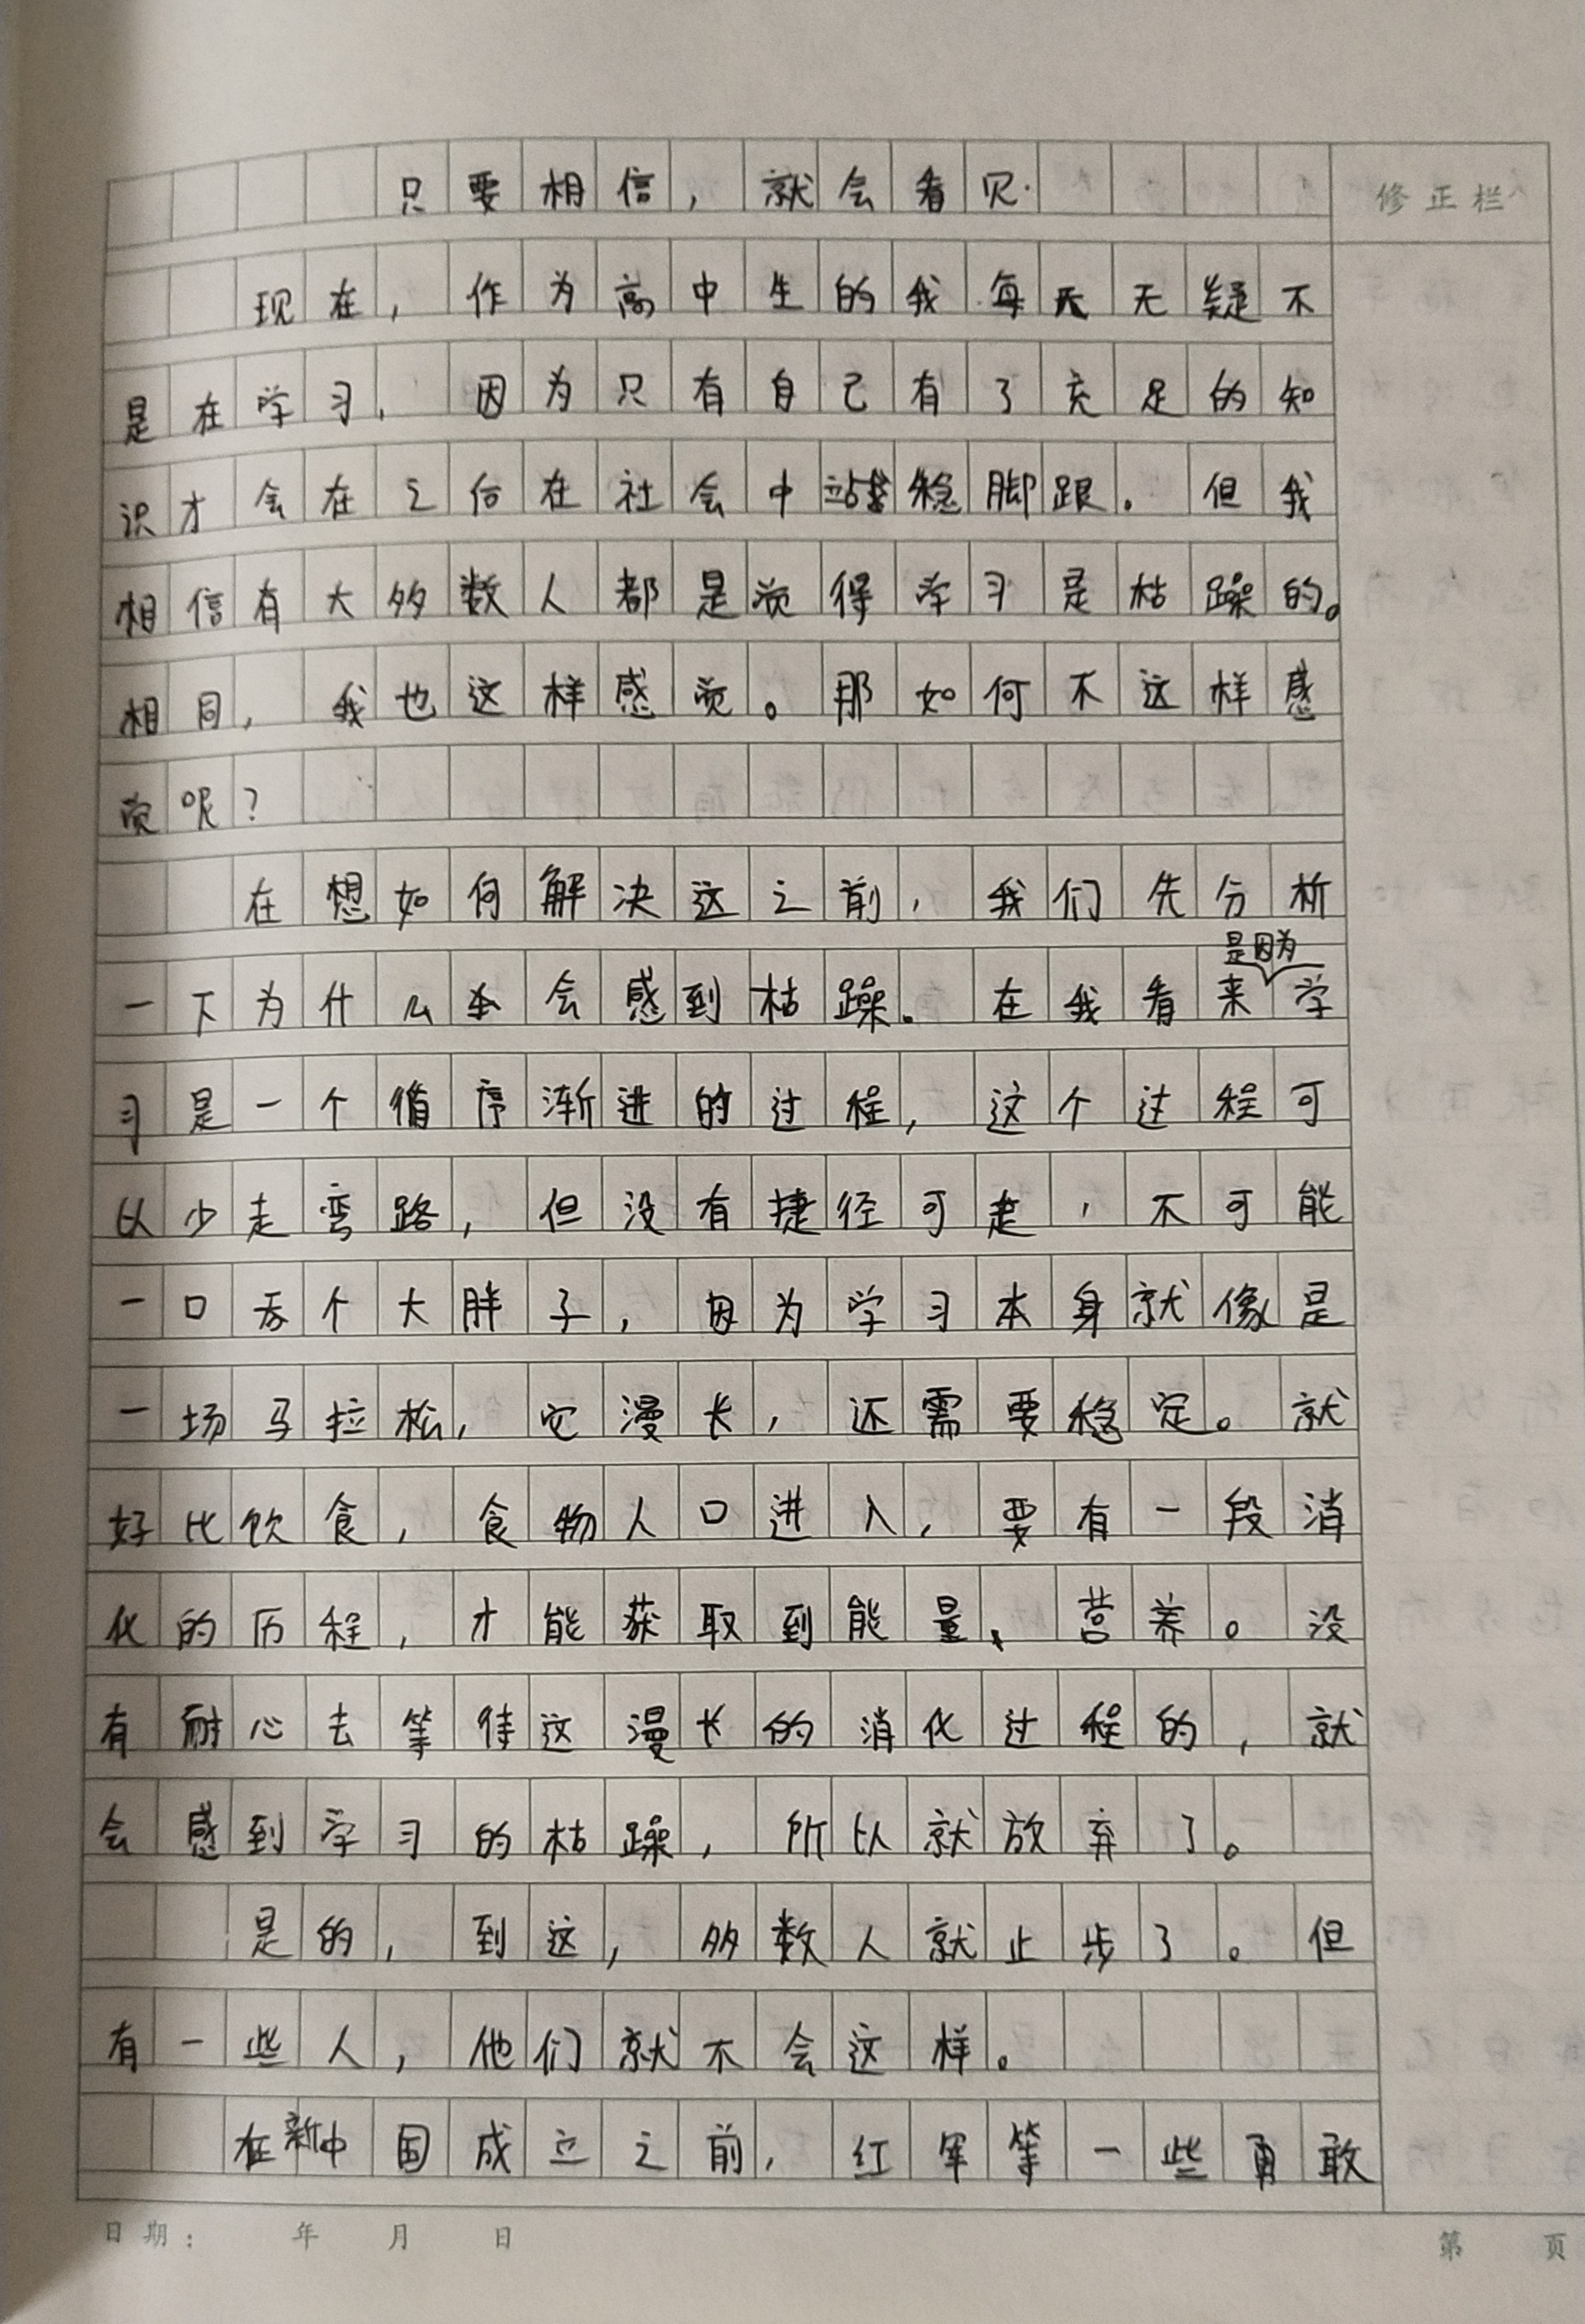 只要相信，就会看见.
修正栏
现在，作为高中生的我每天无疑不
是在学习，因为只有自己有了充足的知
识才会在之后在社会中站稳脚跟。但我
相信有大多数人都是觉得学习是枯躁的。
相同，我也这样感觉。那如何不这样感
觉呢？
在想如何解决这之前，我们先分析
一下为什么会感到枯躁。在我看来是因为学
习是一个循序渐进的过程，这个过程可
以少走弯路，但没有捷径可走，不可能
一口吞个大胖子，因为学习本身就像是
一场马拉松，它漫长，还需要稳定。就
好比饮食，食物人口进入，要有一段消
化的历程，才能获取到能量、营养。没
有耐心去等待这漫长的消化过程的，就
会感到学习的枯躁，所以就放弃了。
是的，到这，多数人就止步了。但
有一些人，他们就不会这样。
在新中国成立之前，红军等一些勇敢
日期： 年 月 日
第 页